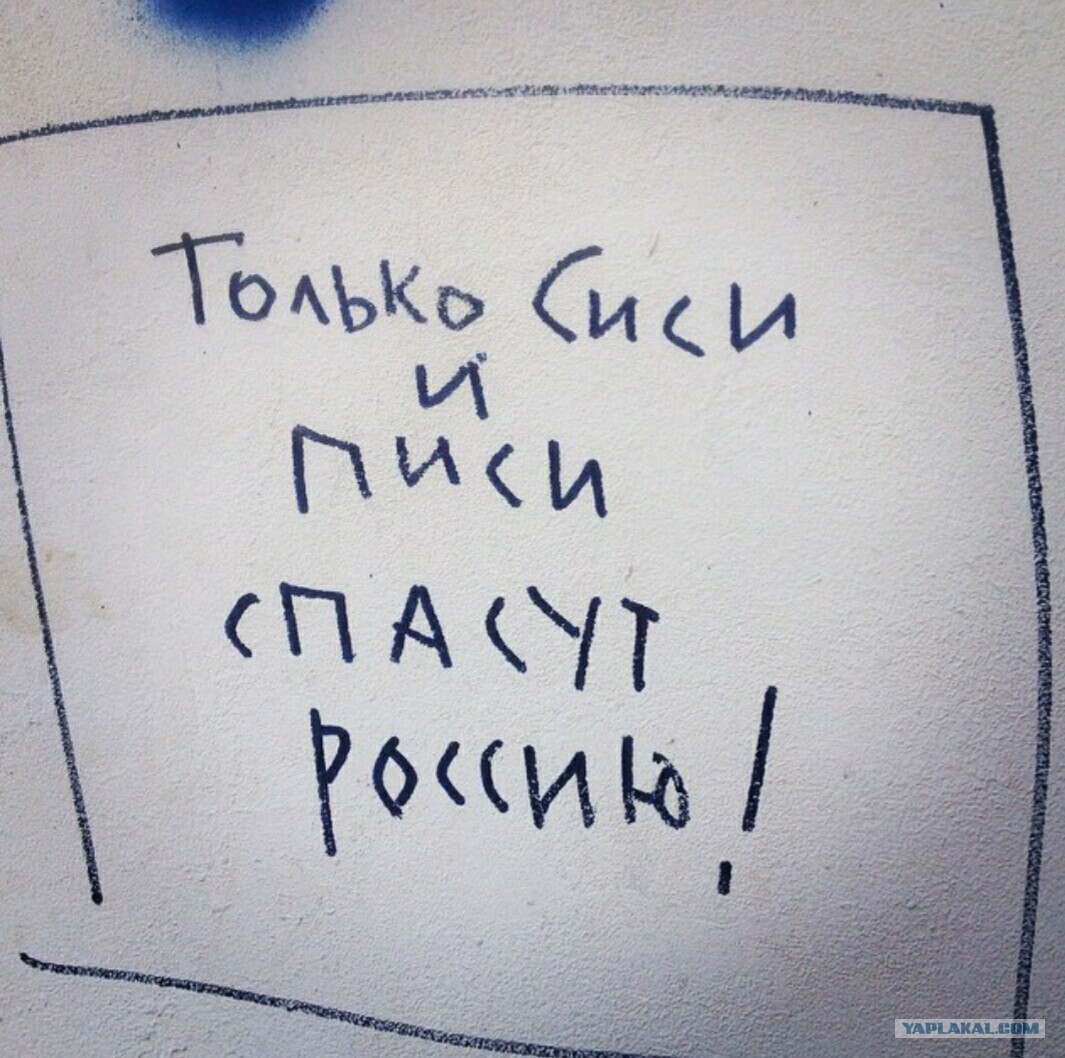 Только Сиси
и
писи
спАсут
россию!
YAPLAKAL.COM